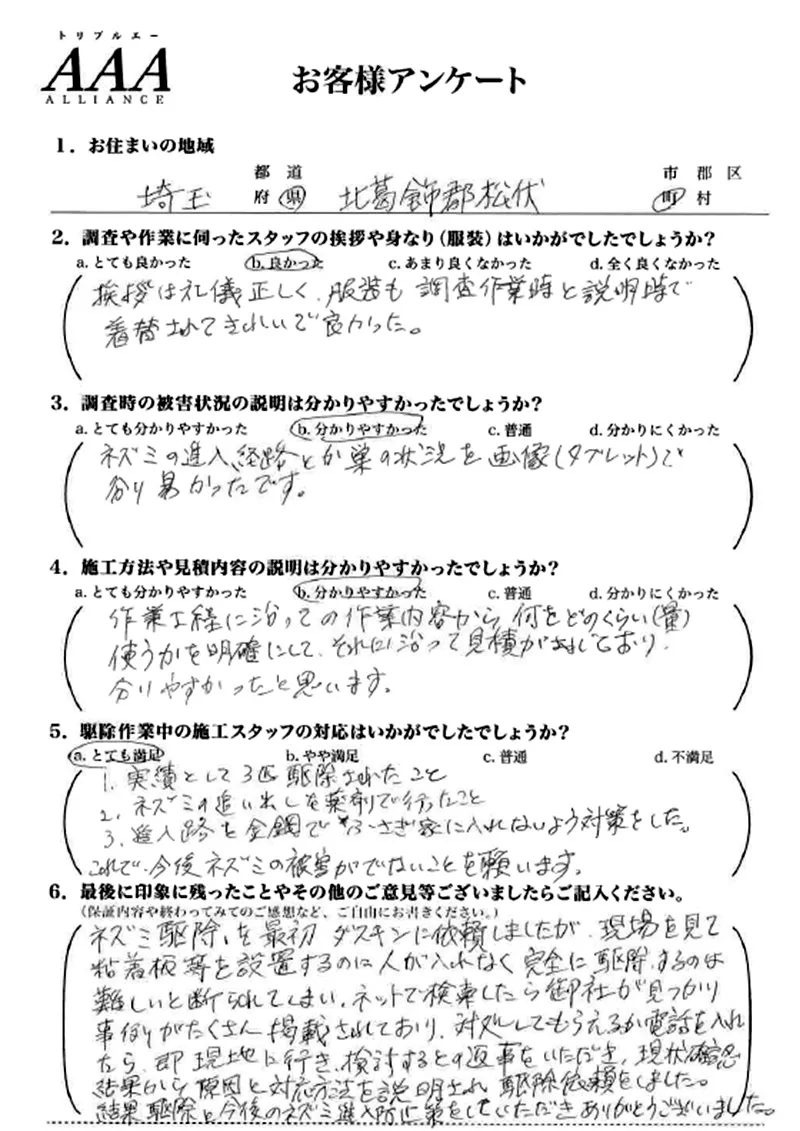 トリプルエー
AAA
ALLIANCE
お客様アンケート
1．お住まいの地域
都 道 市 郡 区
埼玉 府 県 北葛飾郡松伏 町 村
2．調査や作業に伺ったスタッフの挨拶や身なり（服装）はいかがでしたでしょうか？
a. とても良かった b. 良かった c. あまり良くなかった d. 全く良くなかった
挨拶は礼儀正しく、服装も調査作業時と説明時で
着替されてきれいで良かった。
3．調査時の被害状況の説明は分かりやすかったでしょうか？
a. とても分かりやすかった b. 分かりやすかった c. 普通 d. 分かりにくかった
ネズミの進入経路とか巣の状況を画像（タブレット）で
分り易かったです。
4．施工方法や見積内容の説明は分かりやすかったでしょうか？
a. とても分かりやすかった b. 分かりやすかった c. 普通 d. 分かりにくかった
作業工程に沿っての作業内容から何をどのくらい（量）
使うかを明確にして、それに沿って見積がされており、
分りやすかったと思います。
5．駆除作業中の施工スタッフの対応はいかがでしたでしょうか？
a. とても満足 b. やや満足 c. 普通 d. 不満足
1. 実績として3匹駆除されたこと
2. ネズミの追い出しを薬剤で行ったこと
3. 進入路を金網でふさぎ家に入れないよう対策をした。
これで、今後ネズミの被害がでないことを願います。
6．最後に印象に残ったことやその他のご意見等ございましたらご記入ください。
（保証内容や終わってみてのご感想など、ご自由にお書きください。）
ネズミ駆除を最初ダスキンに依頼しましたが、現場を見て
粘着板等を設置するのに人が入れなく完全に駆除するのは
難しいと断られてしまい、ネットで検索したら御社が見つかり
事例がたくさん掲載されており、対処してもらえるか電話を入れ
たら、即現地に行き、検討するとの返事をいただき、現状確認
結果から原因と対応方法を説明され駆除依頼をしました。
結果駆除と今後のネズミ進入防止策をしていただきありがとうございました。